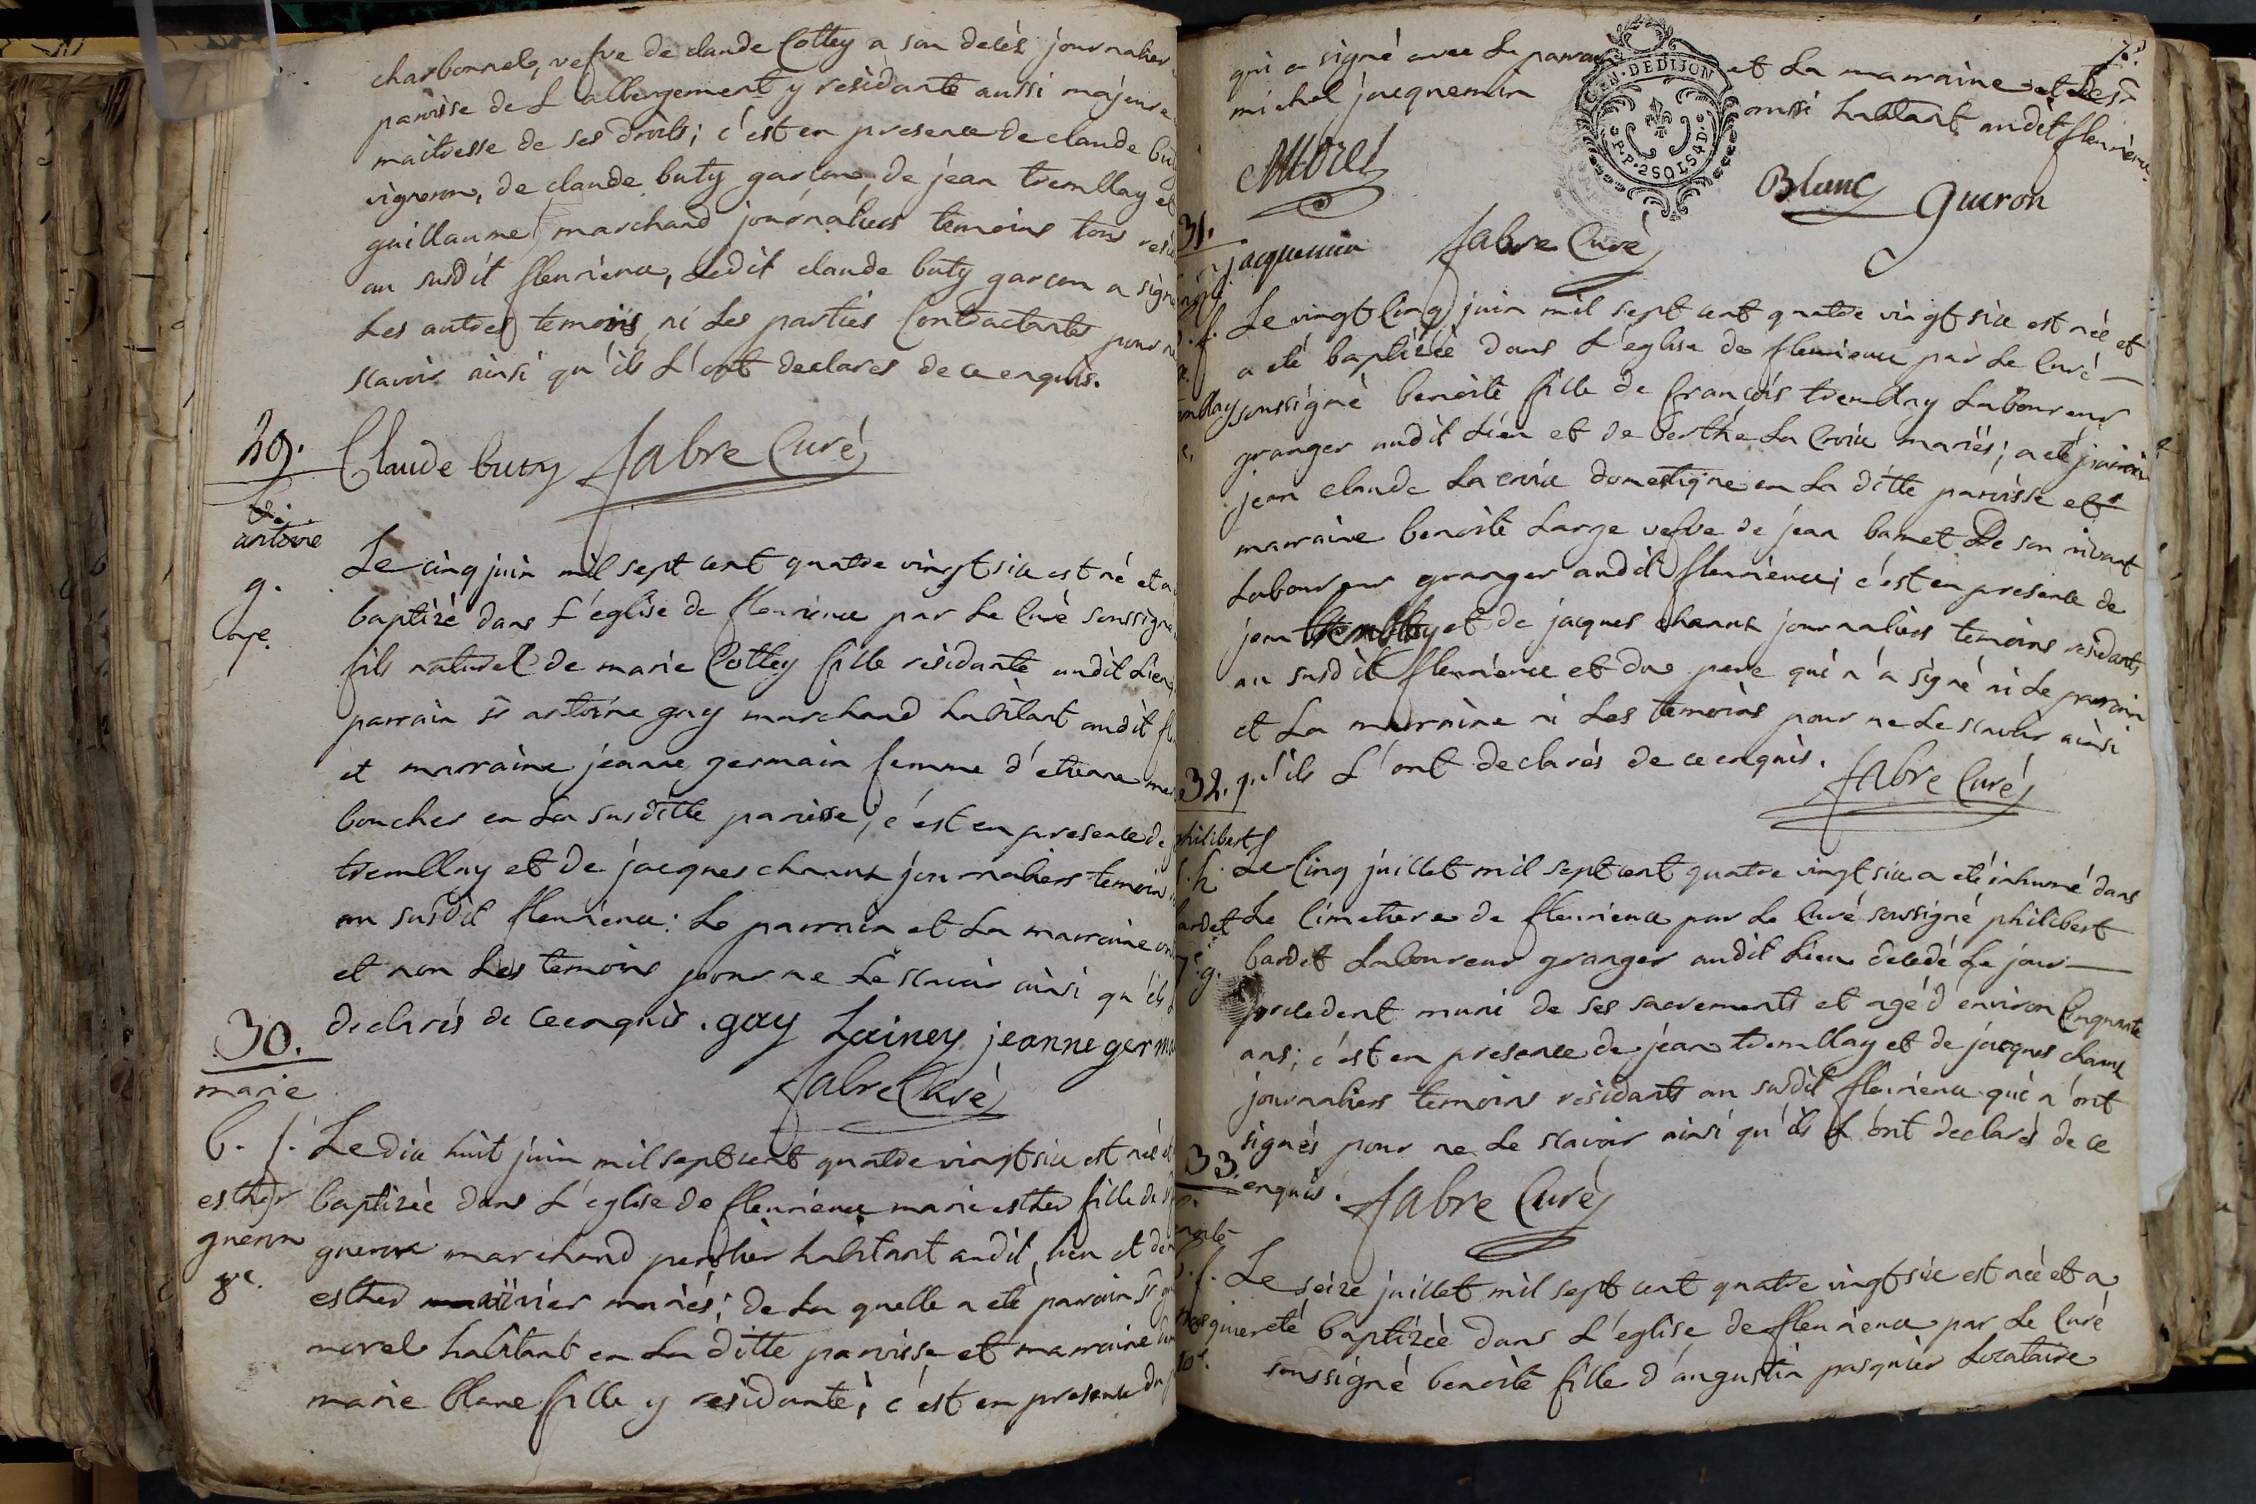 charbonnel, vefve de claude Cottey a son decés journalier
paroisse de L'albergement y residante aussi majeure
maitresse de ses droits; c'est en presence de claude buty
vigneron, de claude buty garcon, de jean tremllay et
guillaume marchand journaliers temoins tous
au susdit fleurieux, Ledit claude buty garcon a signé
Les autres temoins ni Les parties Contractantes pour ne
scavoir ainsi qu'ils L'ont declarés de ce enquis.
Claude buty fabre Curé
29.
antoine
g.
Le cinq juin mil sept cent quatre vingt six est né et a
baptizé dans L'eglise de fleurieux par Le Curé soussigné
fils naturel de marie Cottey fille residante audit Lieu
parrain sr antoine gay marchand habitant audit
et marraine jeanne germain femme d'etienne
boucher en La susditte paroisse; c'est en presence de
tremllay et de jacques channt journaliers temoins
au susdit fleurieux: Le parrain et La marraine
et non Les temoins pour ne Le scavoir ainsi qu'ils
declarés de ce enquis. gay Lainey jeanne germ
fabre Curé
30.
marie
b. f.
esther
gueron
8e.
Le dix huit juin mil sept cent quatre vingt six est née et
baptizée dans L'eglise de fleurieux marie esther fille de
gueron marchand habitant audit lieu et de
esther mariés; de La quelle a eté parrain sr
morel habitant en La ditte paroisse et marraine
marie blanc fille y residante; c'est en presence du
qui a signé avec Le parrain et La marraine et de sr
michel jacquemin aussi habitant audit fleurieux.
GEN. DE DIJON
P.P. 2 SOLS 4 D.
Morel
Blanc gueron
jacquemin fabre Curé
31.
Le vingt Cinq juin mil sept cent quatre vingt six est née et
a eté baptizée dans L'eglise de fleurieux par Le Curé
soussigné benoite fille de francois tremllay Laboureur
granger audit Lieu et de berthe La Croix mariés; a eté parrain
jean claude La croix domestique en La ditte paroisse et
marraine benoite Large vefve de jean bamet De son vivant
Laboureur granger audit fleurieux; c'est en presence de
jean tremllay et de jacques channt journaliers temoins residants
au susdit fleurieux et du pere qui n'a signé ni Le parrain
et La marraine ni Les temoins pour ne Le scavoir ainsi
qu'ils L'ont declarés de ce enquis. fabre Curé
32.
philibert
Le Cinq juillet mil sept cent quatre vingt six a eté inhumé dans
Le Cimetiere de fleurieux par Le Curé soussigné philibert
bardet Laboureur granger audit Lieu decedé Le jour
precedent muni de ses sacrements et agé d'environ Cinquante
ans; c'est en presence de jean tremllay et de jacques channt
journaliers temoins residants au susdit fleurieux qui n'ont
signés pour ne Le scavoir ainsi qu'ils L'ont declarés de ce
enquis. fabre Curé
33.
Le seize juillet mil sept cent quatre vingt six est née et a
eté baptizée dans L'eglise de fleurieux par Le Curé
soussigné benoite fille d'augustin pasquier Locataire